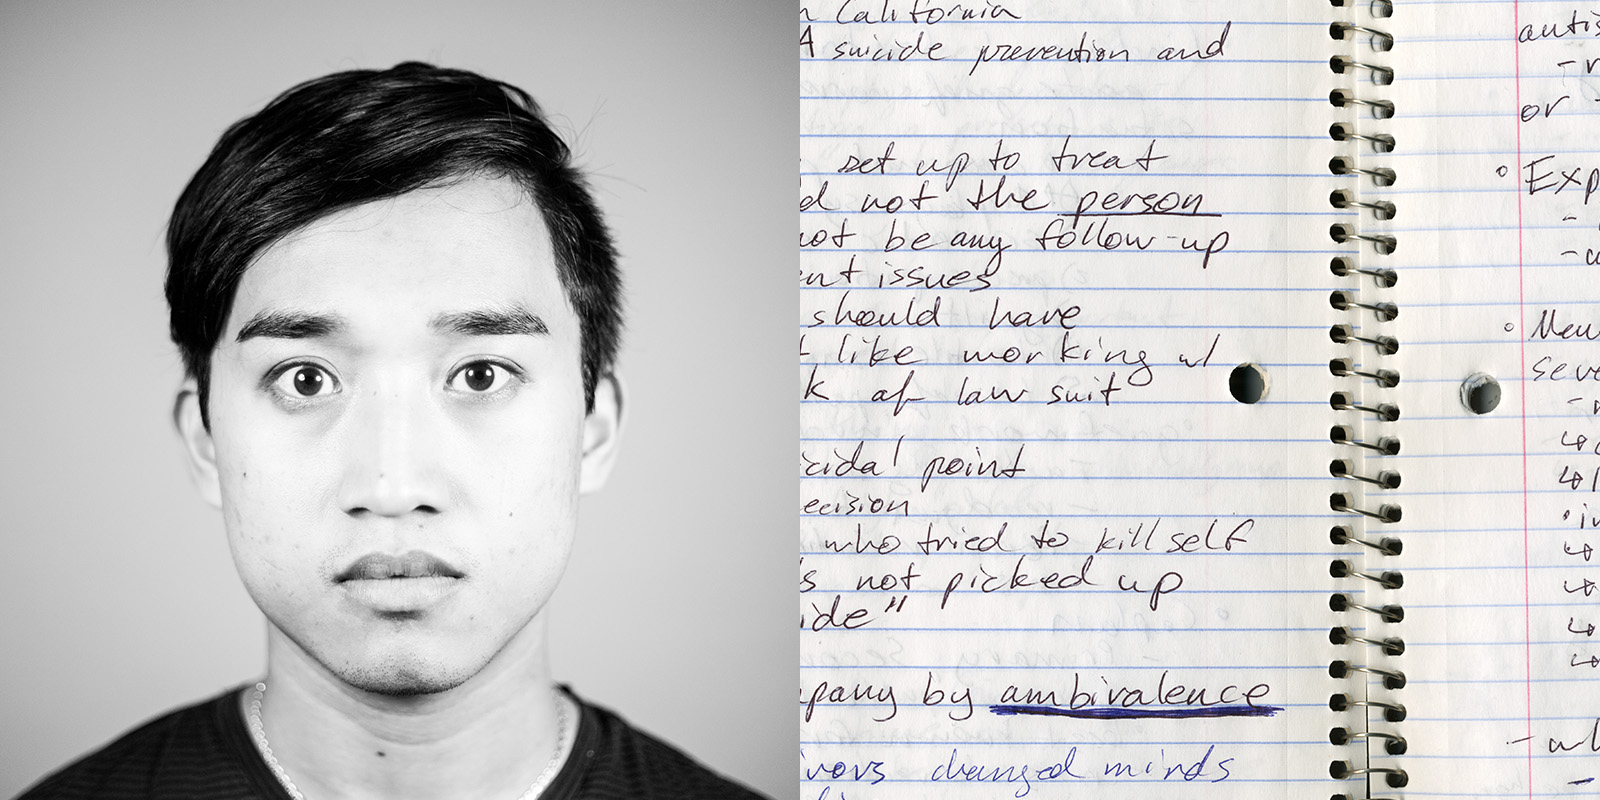 n California
A suicide prevention and
set up to treat
d not the person
not be any follow-up
ent issues
should have
t like working w/
k of law suit
icidal point
ecision
who tried to kill self
's not picked up
ide"
pany by ambivalence
ivors changed minds
autis
- r
or
° Exp
-
- a
° Men
seve
-
↳
↳ l
• in
↳
↳
↳
↳
- wh
-